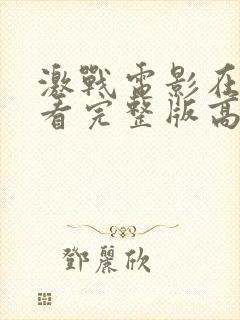 激戰電影在
看完整版高
鄧麗欣